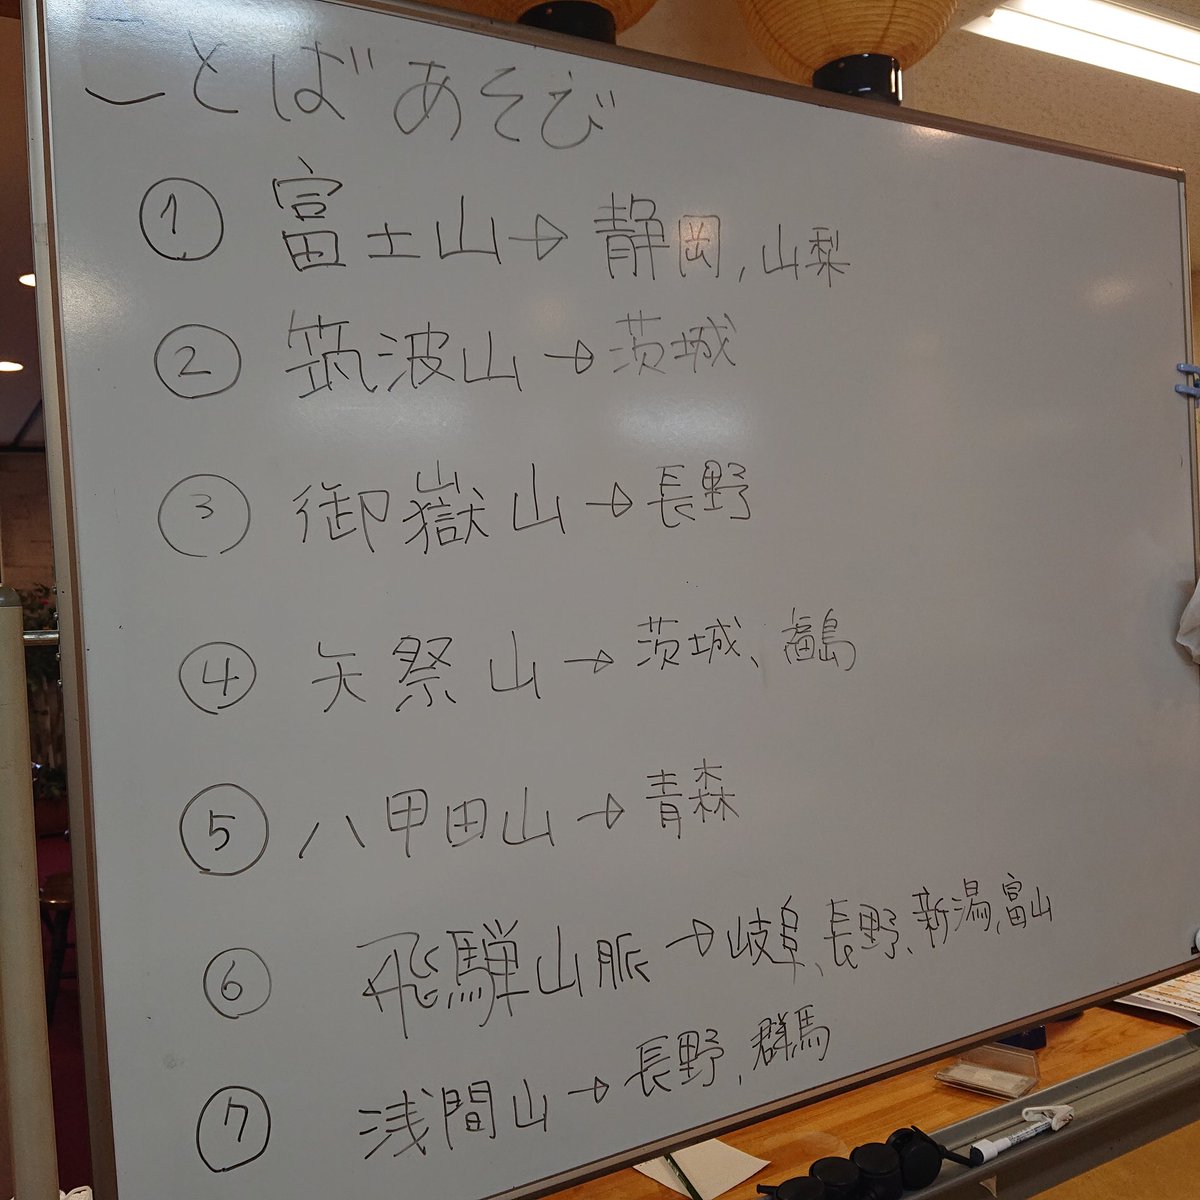 ことばあそび
① 富士山→静岡,山梨
② 筑波山→茨城
③ 御嶽山→長野
④ 矢祭山→茨城、福島
⑤ 八甲田山→青森
⑥ 飛騨山脈→岐阜、長野、新潟,富山
⑦ 浅間山→長野,群馬